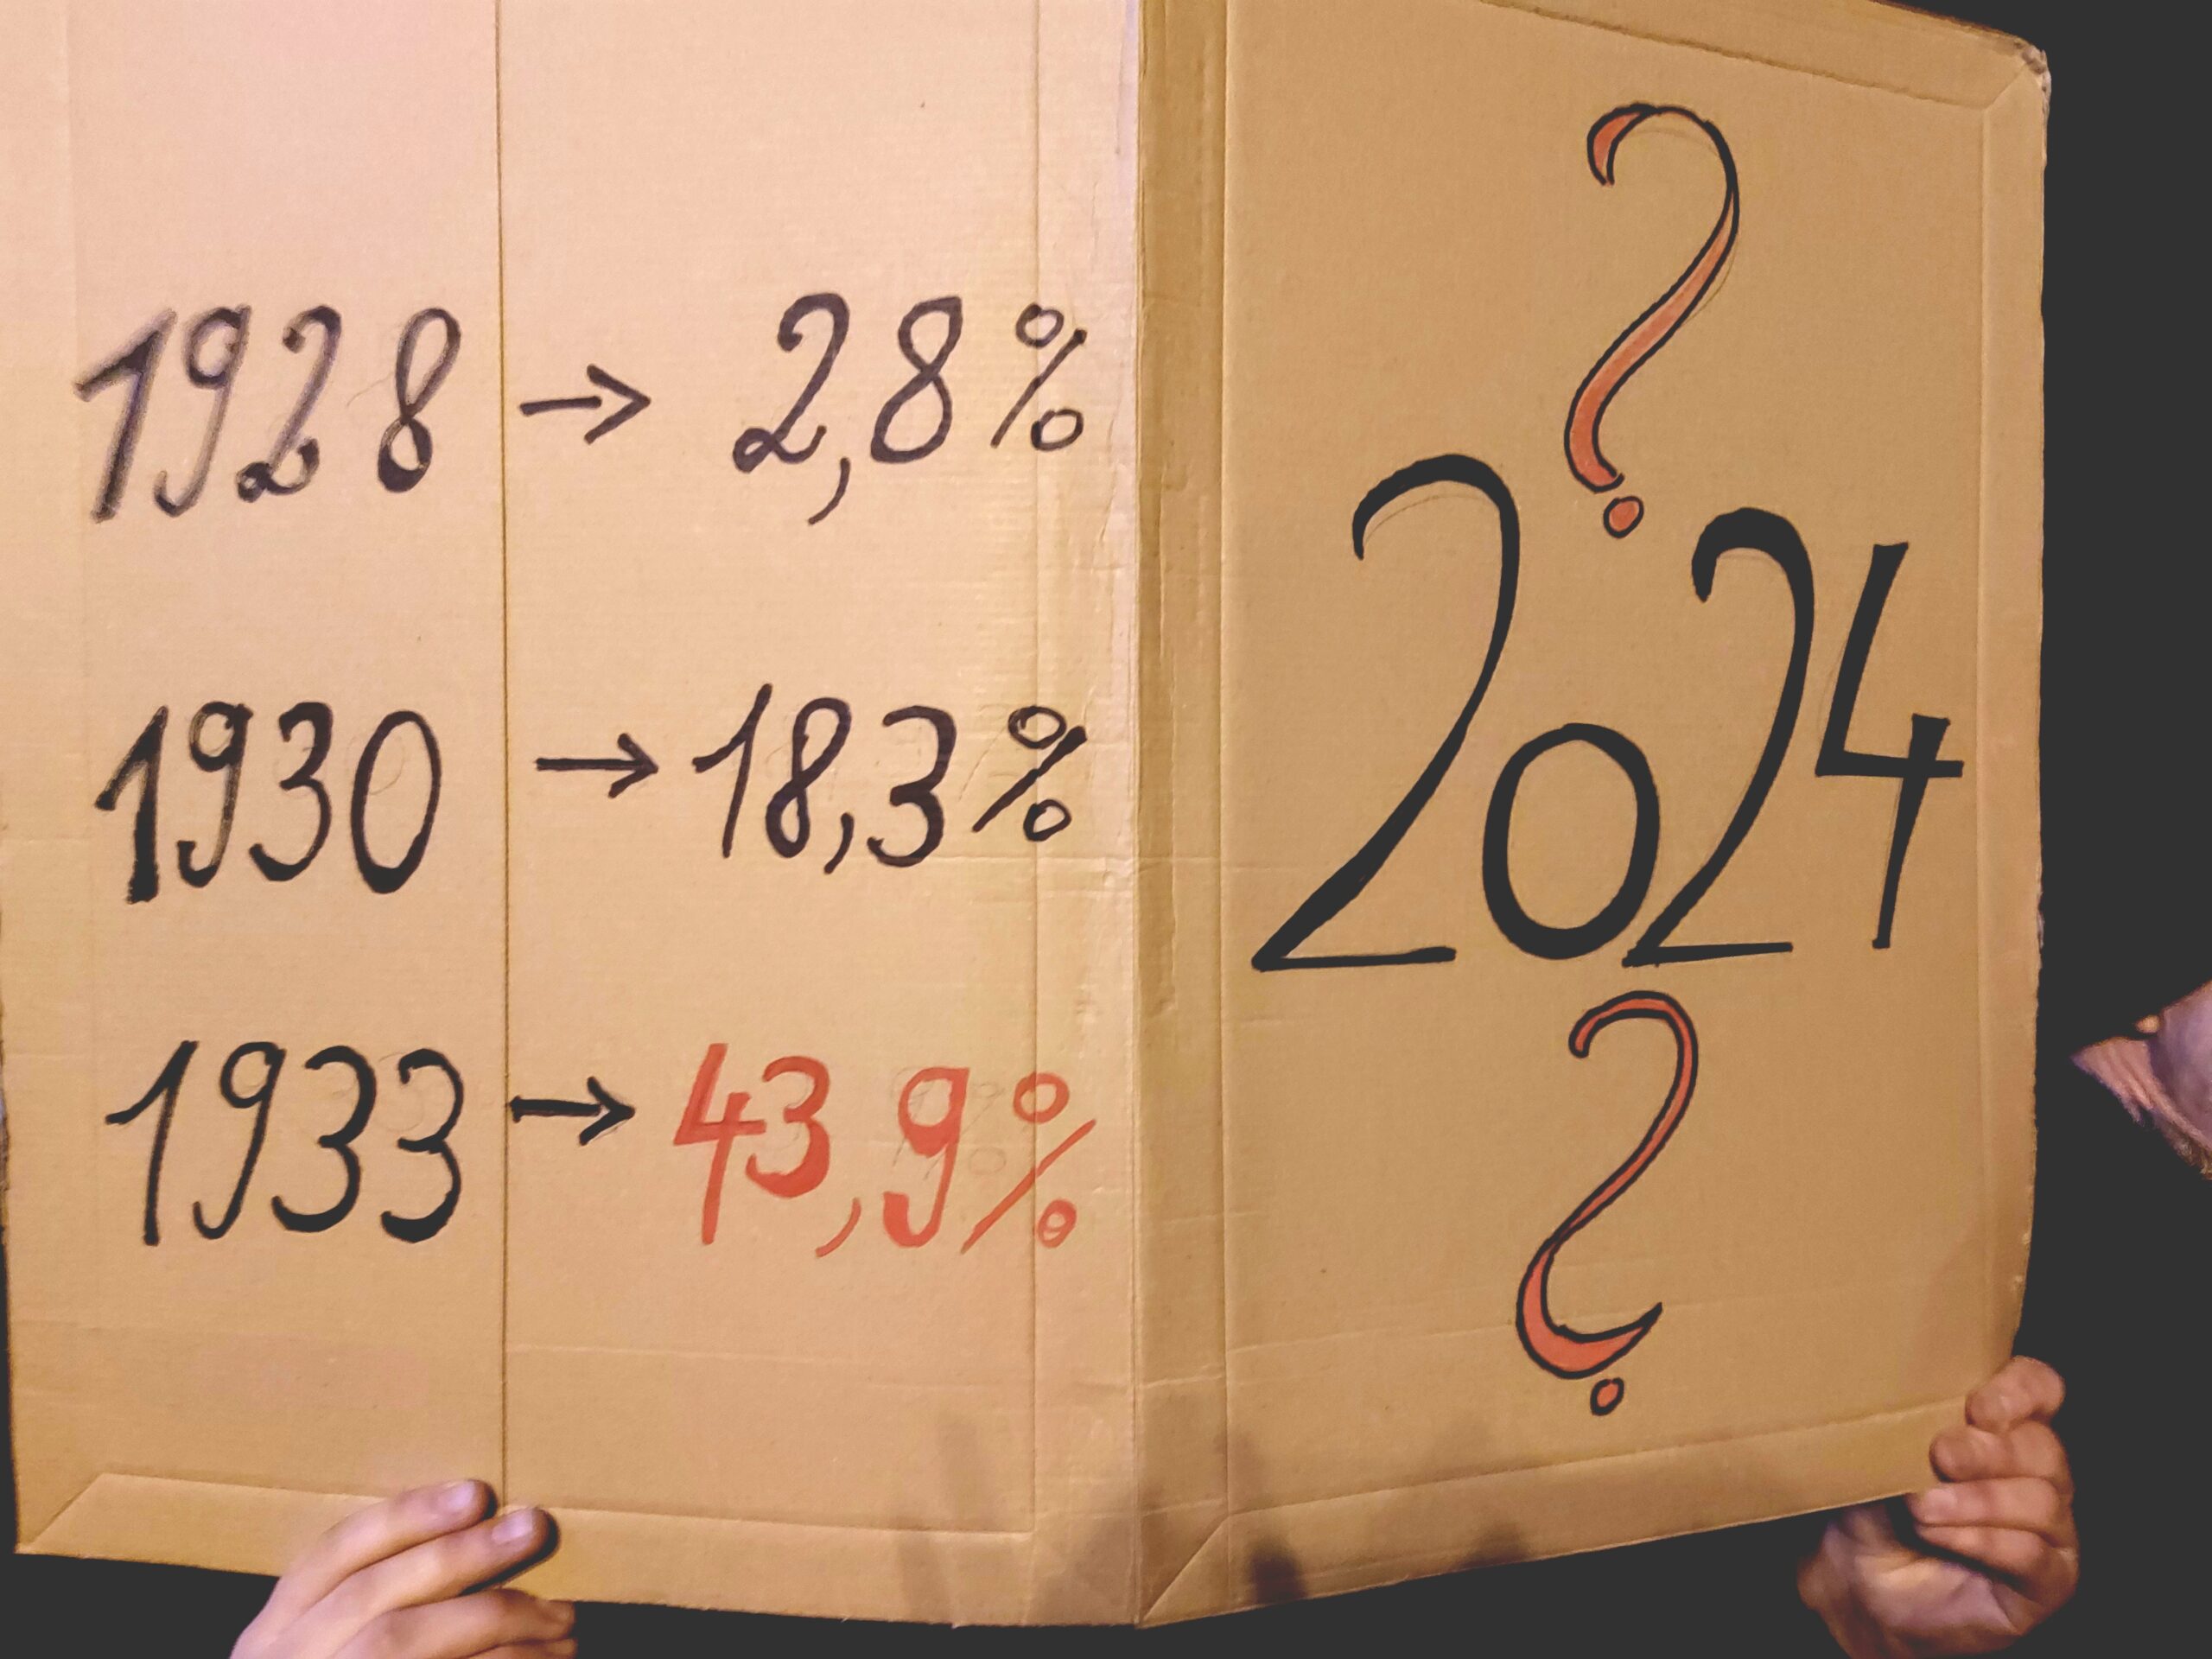 1928 → 2,8%
1930 → 18,3%
1933 → 43,9%
?
2024
?